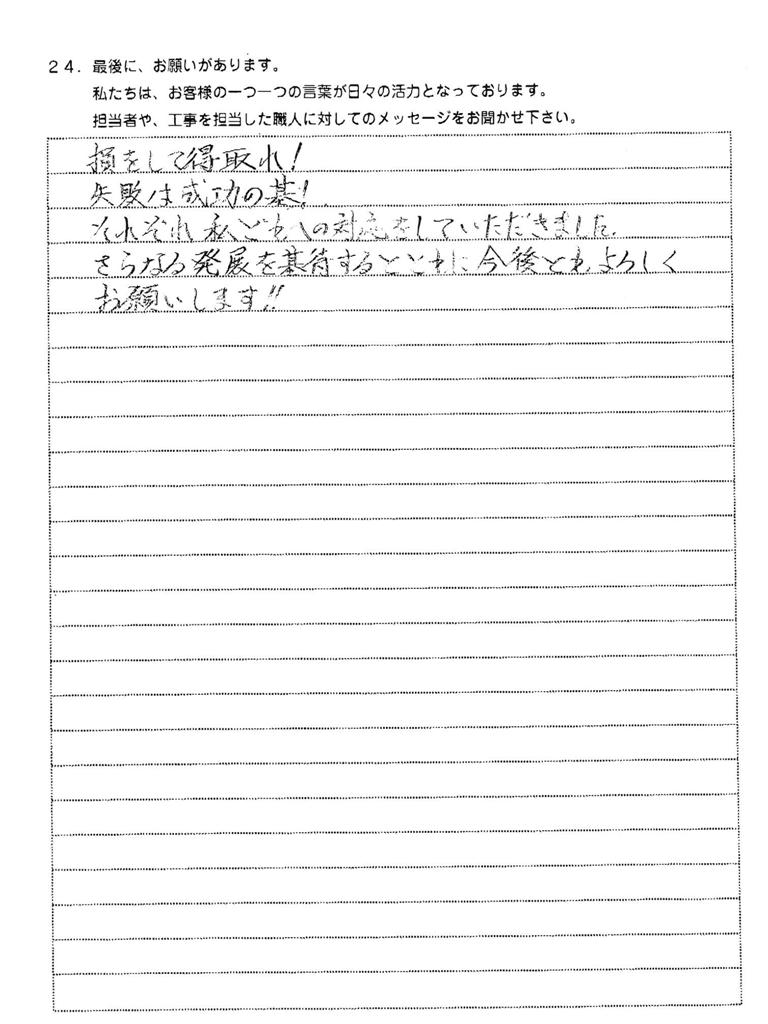 24．最後に、お願いがあります。
私たちは、お客様の一つ一つの言葉が日々の活力となっております。
担当者や、工事を担当した職人に対してのメッセージをお聞かせ下さい。
損をして得取れ！
失敗は成功の基！
それぞれ私どもへの対応をしていただきました。
さらなる発展を基待するとともに今後ともよろしく
お願いします!!